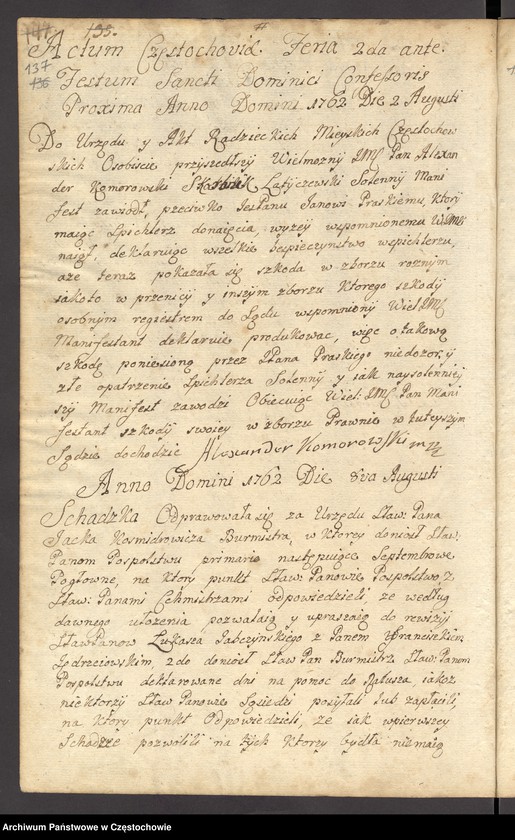 147 135.
137
136
Actum Częstochoviæ. Feria 2da ante.
Festum Sancti Dominici Confessoris
Proxima Anno Domini 1762 Die 2 Augusti
Do Urzędu y Akt Radzieckich Mieyskich Częstochow
skich Osobiscie przyszedłszy Wielmozny JMć Pan Alexan
der Komorowski Skarbnik Latyczewski Solenny Mani
fest zawiodł, przeciwko JeoPanu Janowi Praskiemu, ktory
maiąc Spichlerz donaięcia wyzey wspomnionemu WJMć
naiął, deklaruiąc wszelkie bespieczynstwo wspichlerzu,
aze teraz pokazała się szkoda w zborzu roznym
iakoto w przenicy y inszym zborzu ktorego szkody
osobnym regiestrem do Sądu wspomniony Wiel JMć
Manifestant deklaruie produkowac, więc o takową
szkodę poniesioną przez JPana Praskiego niedozor, y
złe opatrzenie Spichlerza Solenny y iak naysolenniey
szy Manifest zawodzi Obiecuiąc Wiel: JMć Pan Mani
festant szkody swoiey w zborzu Prawnie w tuteyszym
Sądzie dochodzic Alexander Komorowski mp
Anno Domini 1762 Die 8va Augusti
Schadzka Odprawowała się za Urzędu Sław: Pana
Jacka Kosmidrowicza Burmistra, w ktorey doniosł Sław:
Panom Pospolstwu primario następuiące Septembrowe
Pogłowne, na ktory punkt Sław: Panowie Pospolstwo, z
Sław: Panami Cechmistrzami odpowiedzieli ze według
dawnego ułozenia pozwalaią y upraszaią do rewizyi
Sław Panow Łukasza Jabczynskiego z Panem Franciszkiem
Jędrzeiowskim, 2do doniosł Sław Pan Burmistrz Sław: Panom
Pospolstwu deklarowane dni na pomoc do Ratusza, iakoz
niektorzy Sław Panowie Sąsiedzi posyłali lub zapłacili,
na ktory punkt Odpowiedzieli, ze iak wpierwszey
Schadzce pozwolili na tych ktorzy bydła niemaią